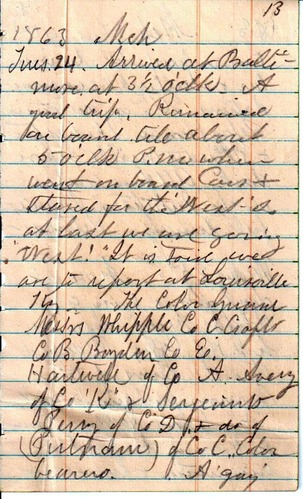 13
1863 Mch
Tues. 24. Arrived at Balti-
more, at 3½ o'clk. A
trip. Remained
on board till about
5 o'clk P.m. when
went on board Cars &
started for the West. So
at last we are going
"West!" It is said we
are to report at Louisville
Ky. The Color Guard
Messrs Whipple Co C. Crafts
Co B. Boyden Co E.
Hartwell of Co A. Avery
of Co "K" & Sergeants
Perry of Co D. & do of
(Putnam) of Co C. Color
bearers. A gay